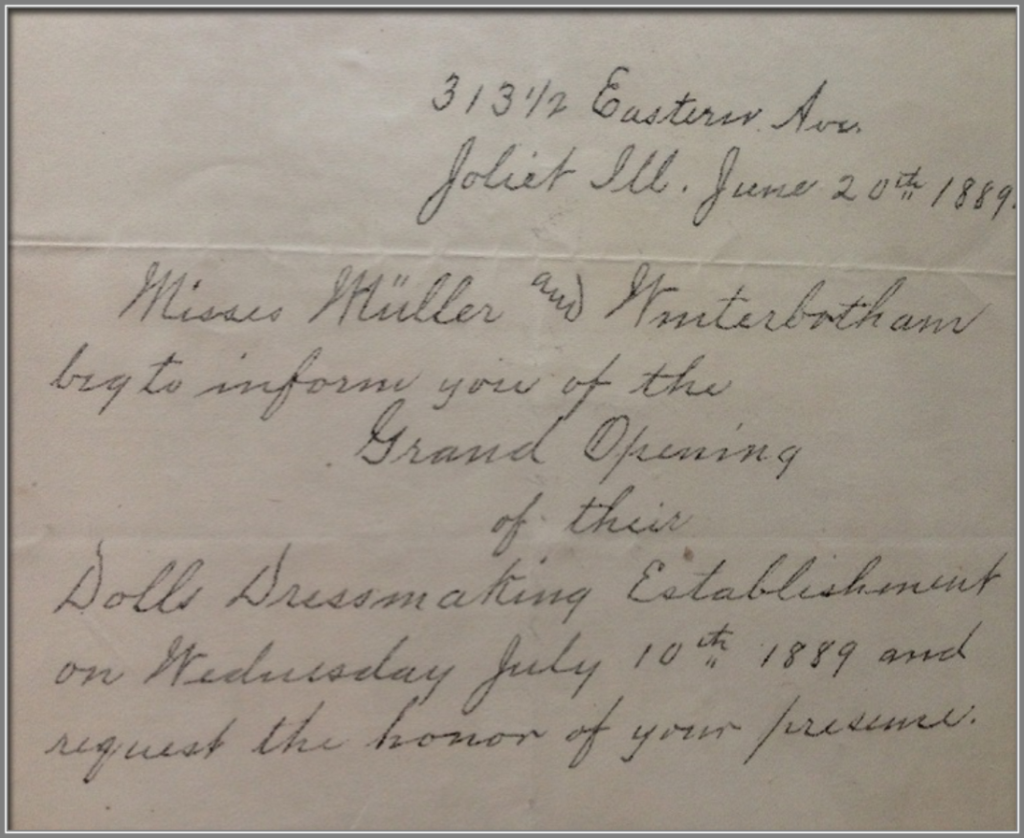 313 1/2 Eastern Ave.
Joliet Ill. June 20th 1889.
Misses Müller and Winterbotham
beg to inform you of the
Grand Opening
of their
Dolls Dressmaking Establishment
on Wednesday July 10th 1889 and
request the honor of your presence.